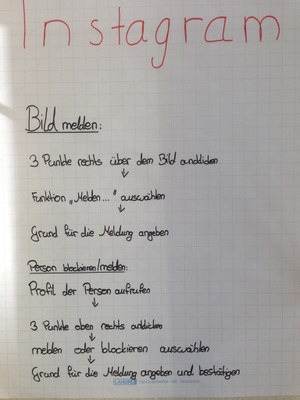 Instagram
Bild melden:
3 Punkte rechts über dem Bild anclicken
↓
Funktion „Melden..." auswählen
↓
Grund für die Meldung angeben
Person blockieren/melden:
Profil der Person aufrufen
↓
3 Punkte oben rechts anclicken
↓
melden oder blockieren auswählen
↓
Grund für die Meldung angeben und bestätigen
LANDRÉ